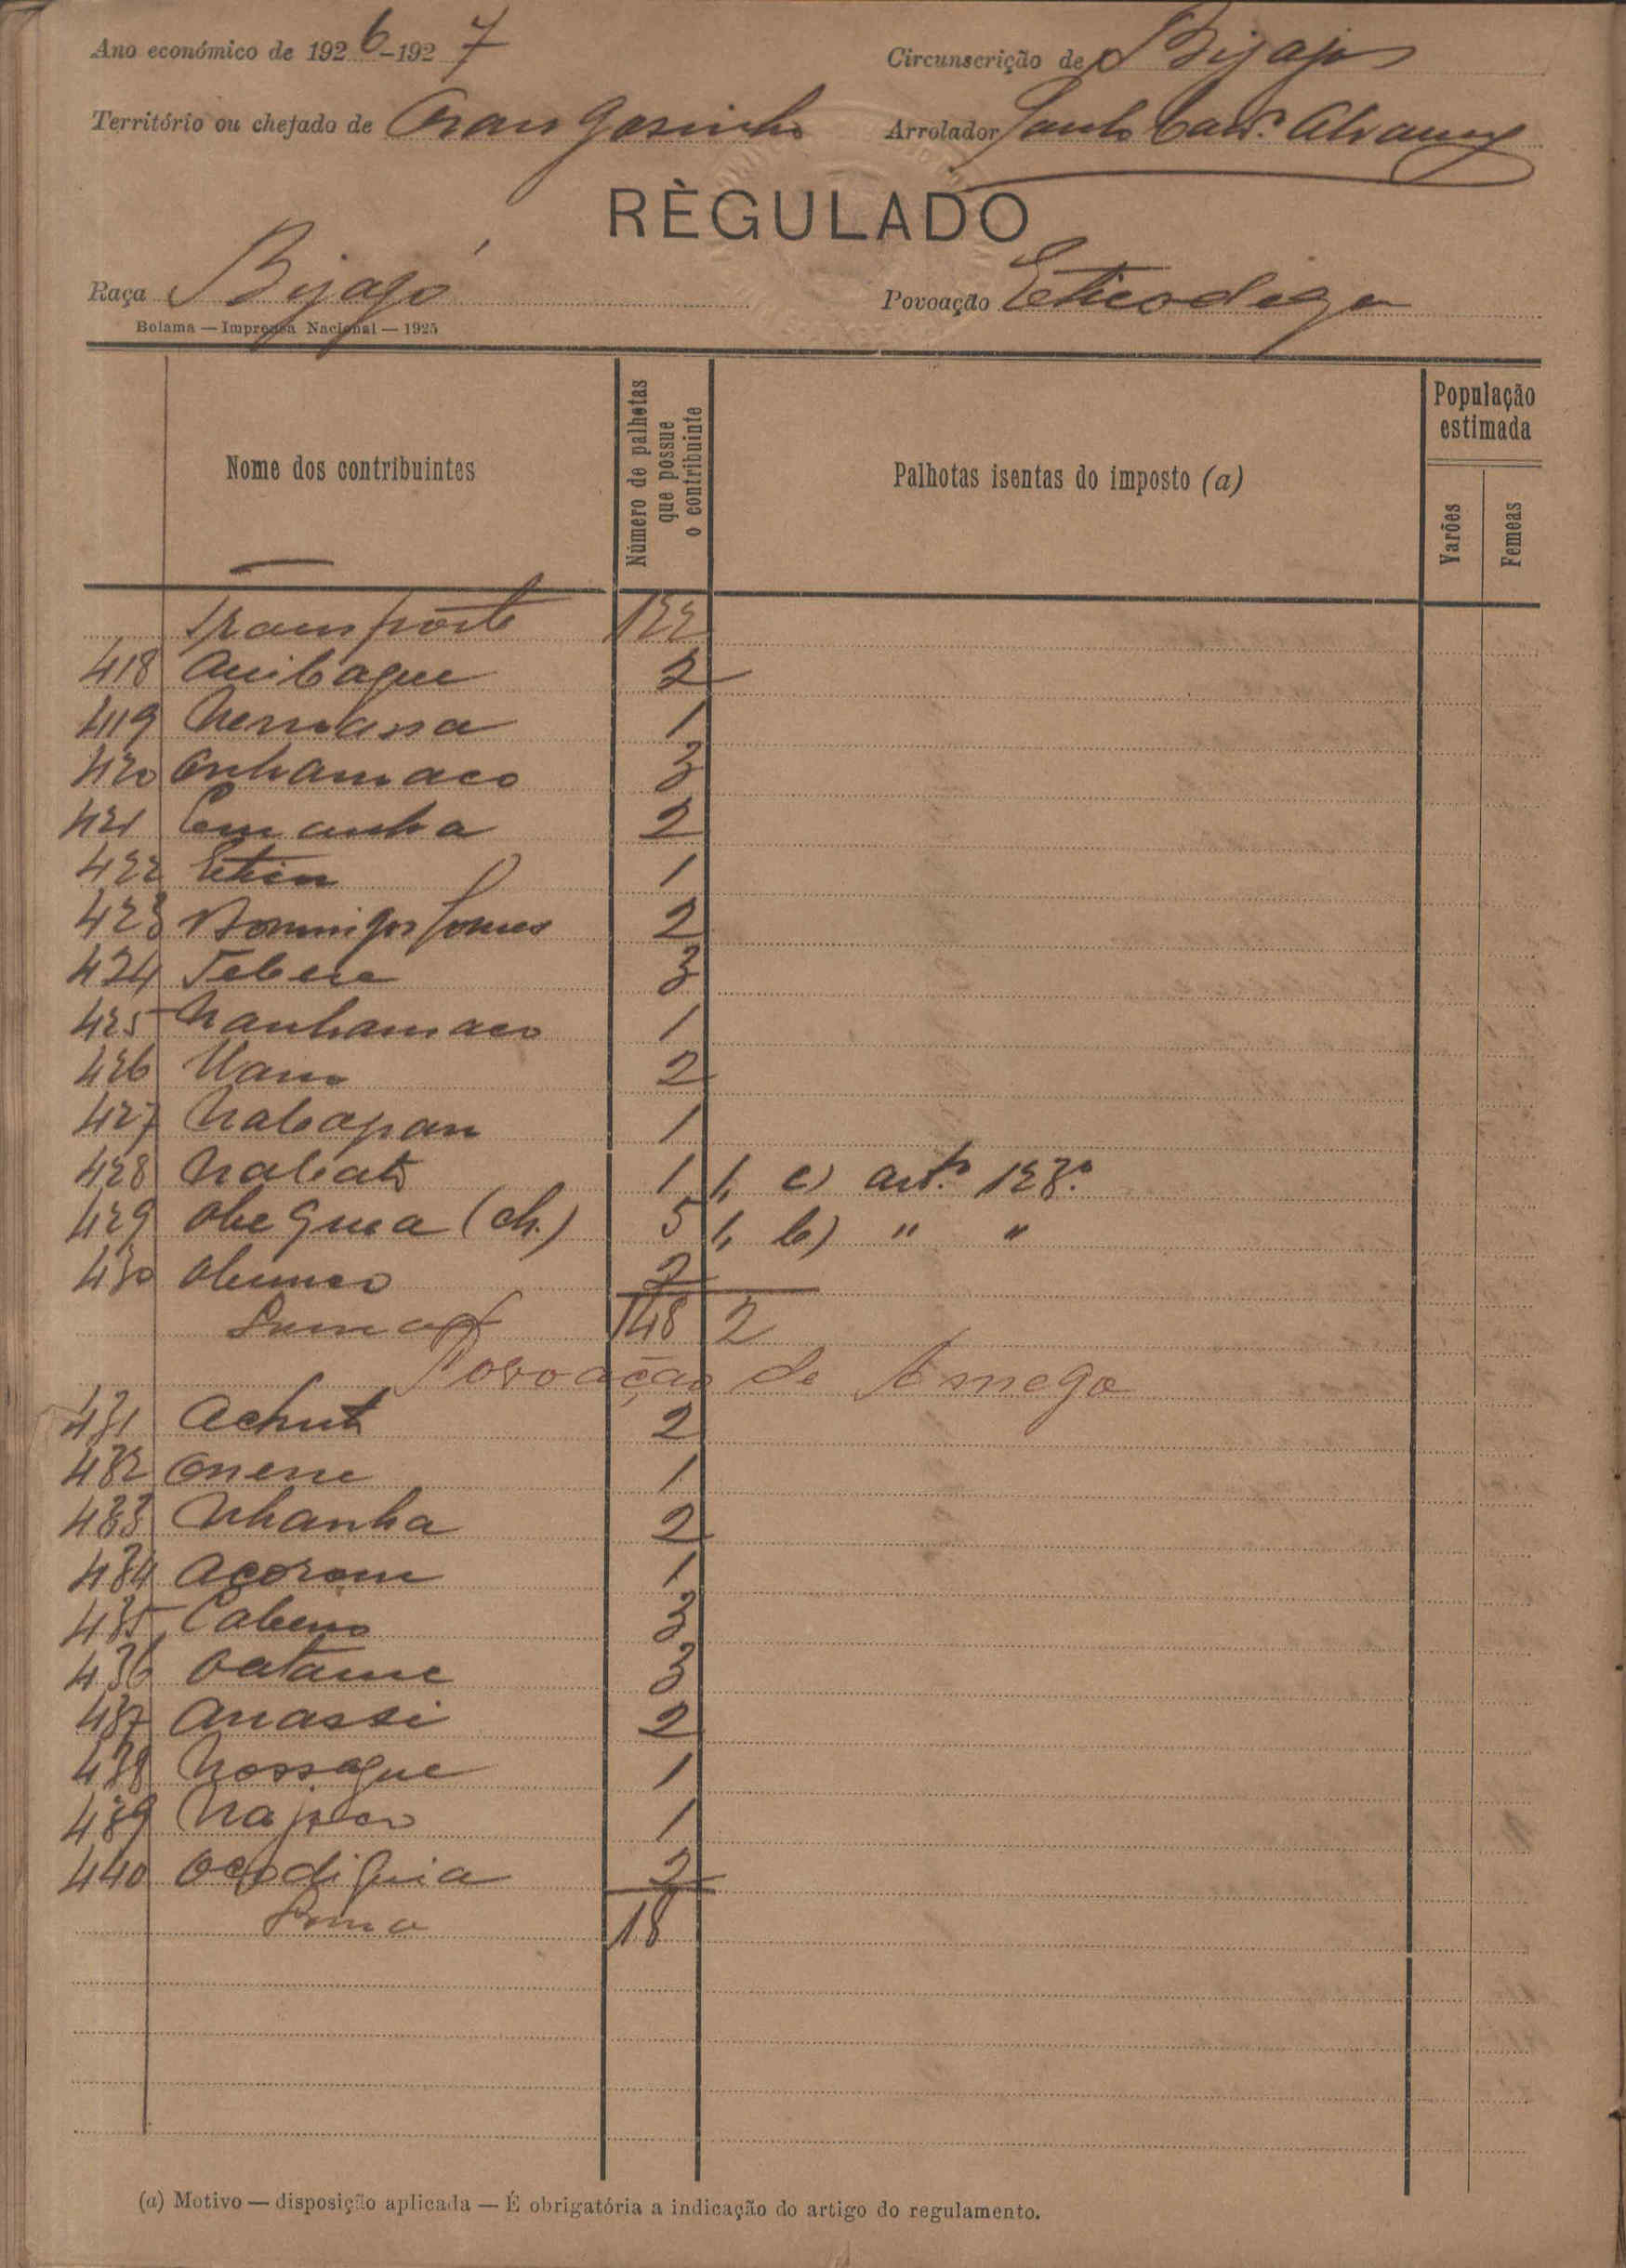 Ano económico de 1926-1927
Circunscrição de Bijagós
Território ou chefado de Orangosinho
Arrolador Paulo
RÈGULADO
Raça Bijagó
Povoação Eticodega
Bolama — Imprensa Nacional — 1925
Nome dos contribuintes
Número de palhotas que possue o contribuinte
Palhotas isentas do imposto (a)
População estimada
Varões
Femeas
Transporte 122
418 Anibaque 2
419 1
420 Onhamaco 3
421 Comanha 2
422 Etim 1
423 Domingos Gomes 2
424 3
425 Nanhamaco 1
426 2
427 Nabapan 1
428 Nabato 1 1, c) artº 123º
429 (ch.) 5 1, b) " "
430 2
Soma 148 2
Povoação de Amego
431 Achuto 2
432 Onene 1
433 Nhanha 2
434 Açorom 1
435 3
436 Oatame 3
437 Anassi 2
438 Nossague 1
439 1
440 2
Soma 18
(a) Motivo — disposição aplicada — É obrigatória a indicação do artigo do regulamento.